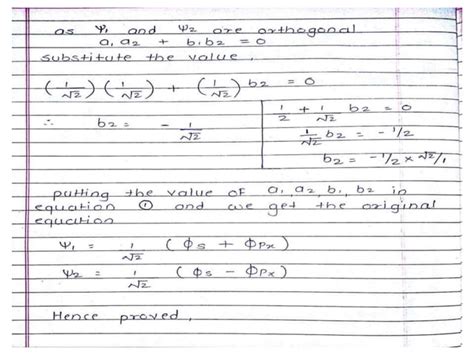 as ψ₁ and ψ₂ are orthogonal
a₁ a₂ + b₁ b₂ = 0
substitute the value,
(1/√2) (1/√2) + (1/√2) b₂ = 0
∴ b₂ = - 1/√2
1/2 + 1/√2 b₂ = 0
1/√2 b₂ = -1/2
b₂ = -1/2 × √2/1
putting the value of a₁ a₂ b₁ b₂ in
equation ① and we get the original
equation
ψ₁ = 1/√2 (ϕs + ϕPx)
ψ₂ = 1/√2 (ϕs - ϕPx)
Hence proved,